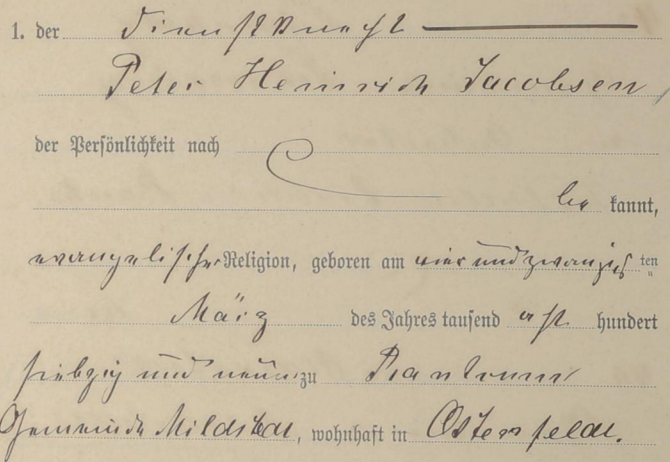 1. der Dienstknecht
Peter Heinrich Jacobsen,
der Persönlichkeit nach
be kannt,
evangelischer Religion, geboren am vier und zwanzig ten
März des Jahres tausend acht hundert
siebzig und neun zu Rantrum
Gemeinde Mildstedt, wohnhaft in Ostenfeld.